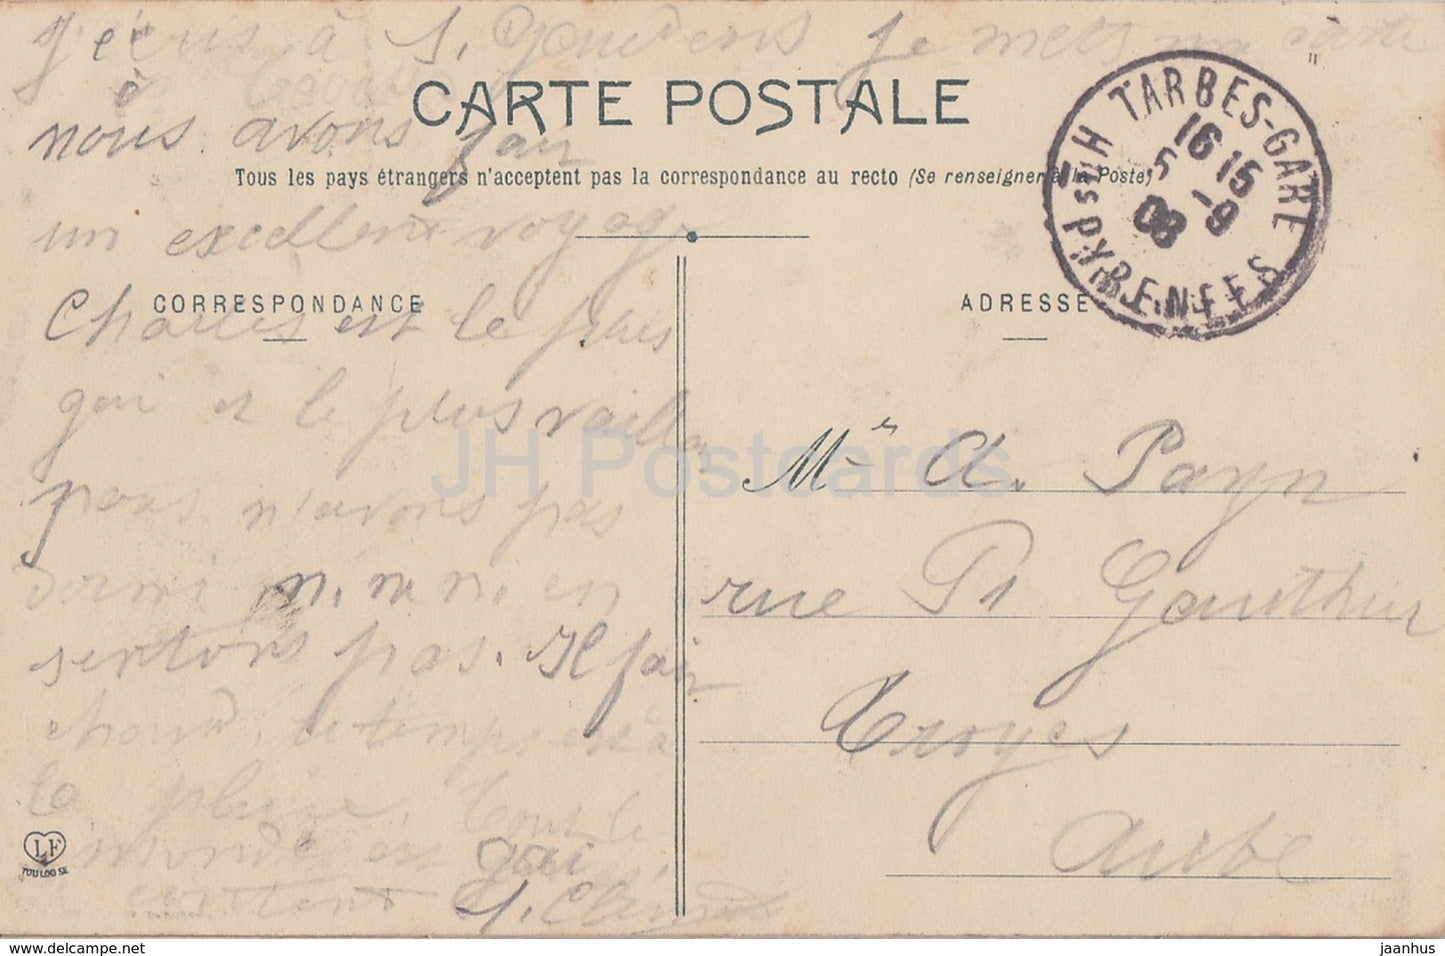 j'écris à S. Gaudens je mets ma carte
à
nous avons fair
CARTE POSTALE
Tous les pays étrangers n'acceptent pas la correspondance au recto (Se renseigner à la Poste)
TARBES-GARE
16 15
5 - 9
08
HTES PYRENEES
un excellent voyage
CORRESPONDANCE
ADRESSE
Charles est le plus
gai et le plus vaillan
nous n'avons pas
dormi n. n. n. en
sentons pas. Il fair
chaud, le temps est à
la pluie, Tout le
monde est gai
content
JH Postcards
Mr A. Payn
rue Pr Gauthier
Troyes
Aube
LF
TOULOUSE
www.delcampe.net
jaanhus